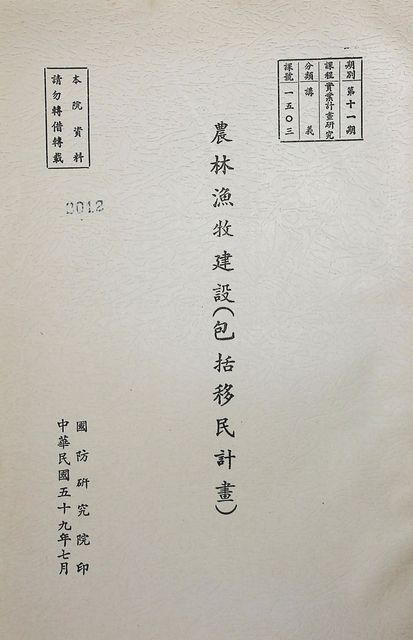 期別 第十一期
課程 實業計畫研究
分類 講義
課號 一五〇三
農林漁牧建設(包括移民計畫)
本院資料
請勿轉借轉載
2012
國防研究院印
中華民國五十九年七月